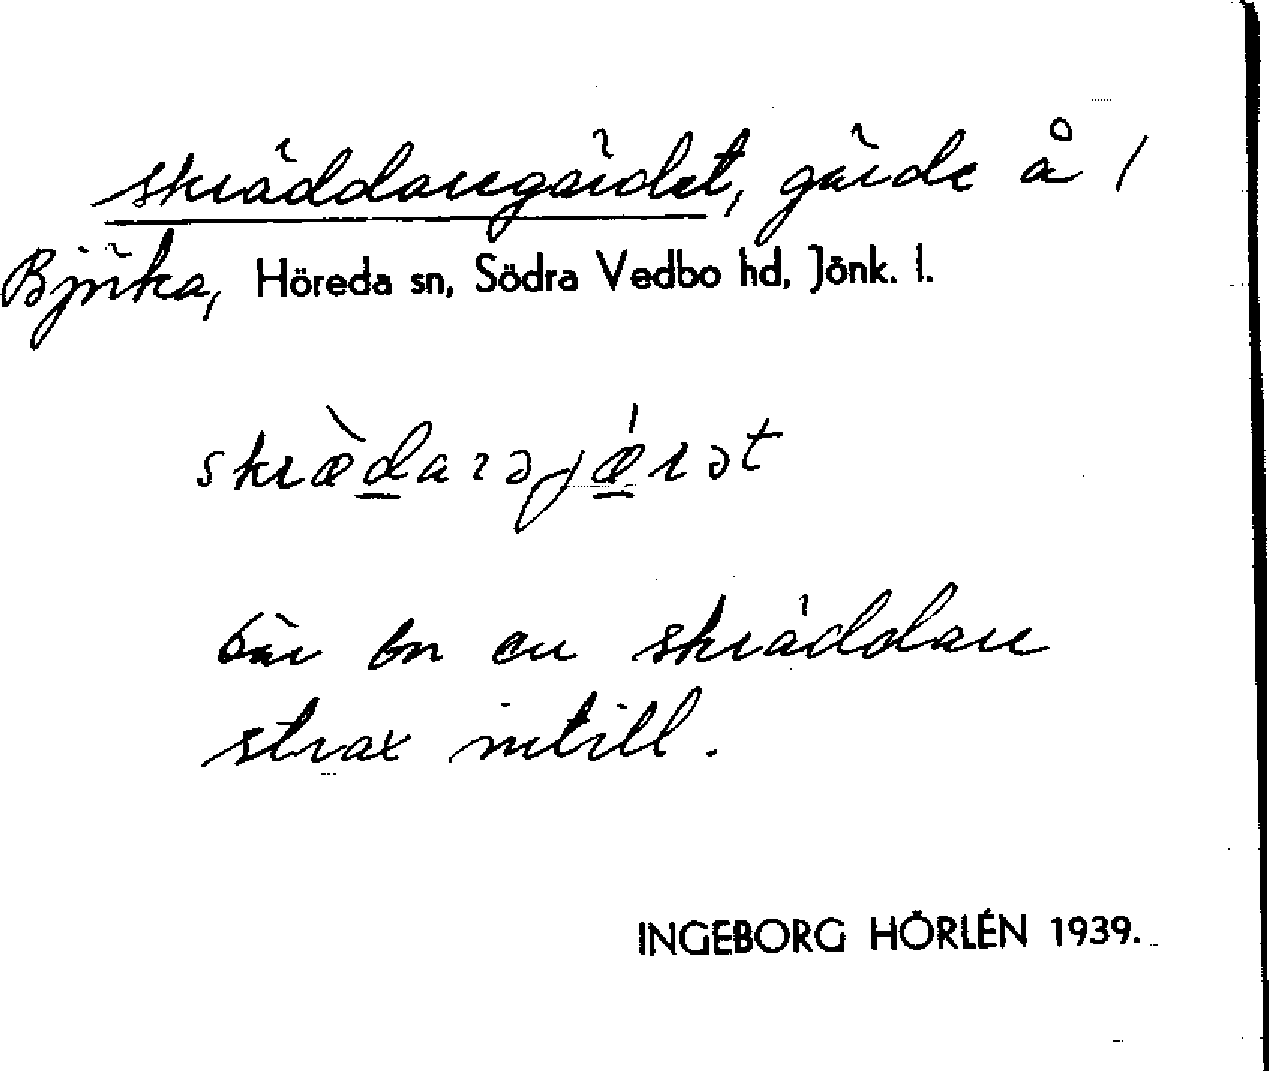 skräddaregärdet, gärde å /
Björka, Höreda sn, Södra Vedbo hd, Jönk. l.
skrædarəjærət
här bn en skräddare
strax intill.
INGEBORG HÖRLÉN 1939.